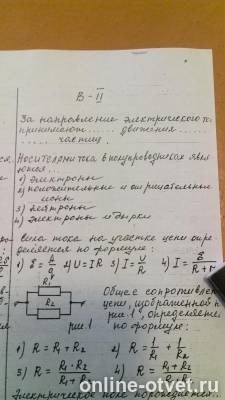 В - II
За направление электрического то
принимают ...... движения ......
...... частиц.
Носителями тока в полупроводниках явл
яются...
1) электроны
2) положительные и отрицательные
ионы
3) нейтроны
4) электроны и дырки
Сила тока на участке цепи опре
деляется по формуле:
1) ε = A/q 2) U = IR 3) I = U/R 4) I = ε/R + r
R1
R2
рис 1
Общее сопротивлен
цепи, изображенной н
рис 1, определяется
по формуле:
1) R = R1 + R2 2) R = 1/R1 + 1/R2
3) R = R1 · R2/R1 + R2 4) R = R1 + R2/R1 · R2
Электрическое поле
online-otvet.ru